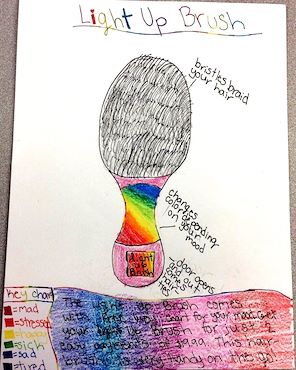 Light Up Brush
bristles braid
your hair
changes
color depending
on your
mood
-door opens
Light
Up
Brush
Key chart
=mad
=stressed
=happy
=sick
=sad
=tired
The light up brush comes
with a key chart for your mood, get
your light up brush for just 2
easy payments of 19.99. This hair
brush is very handy on the go!